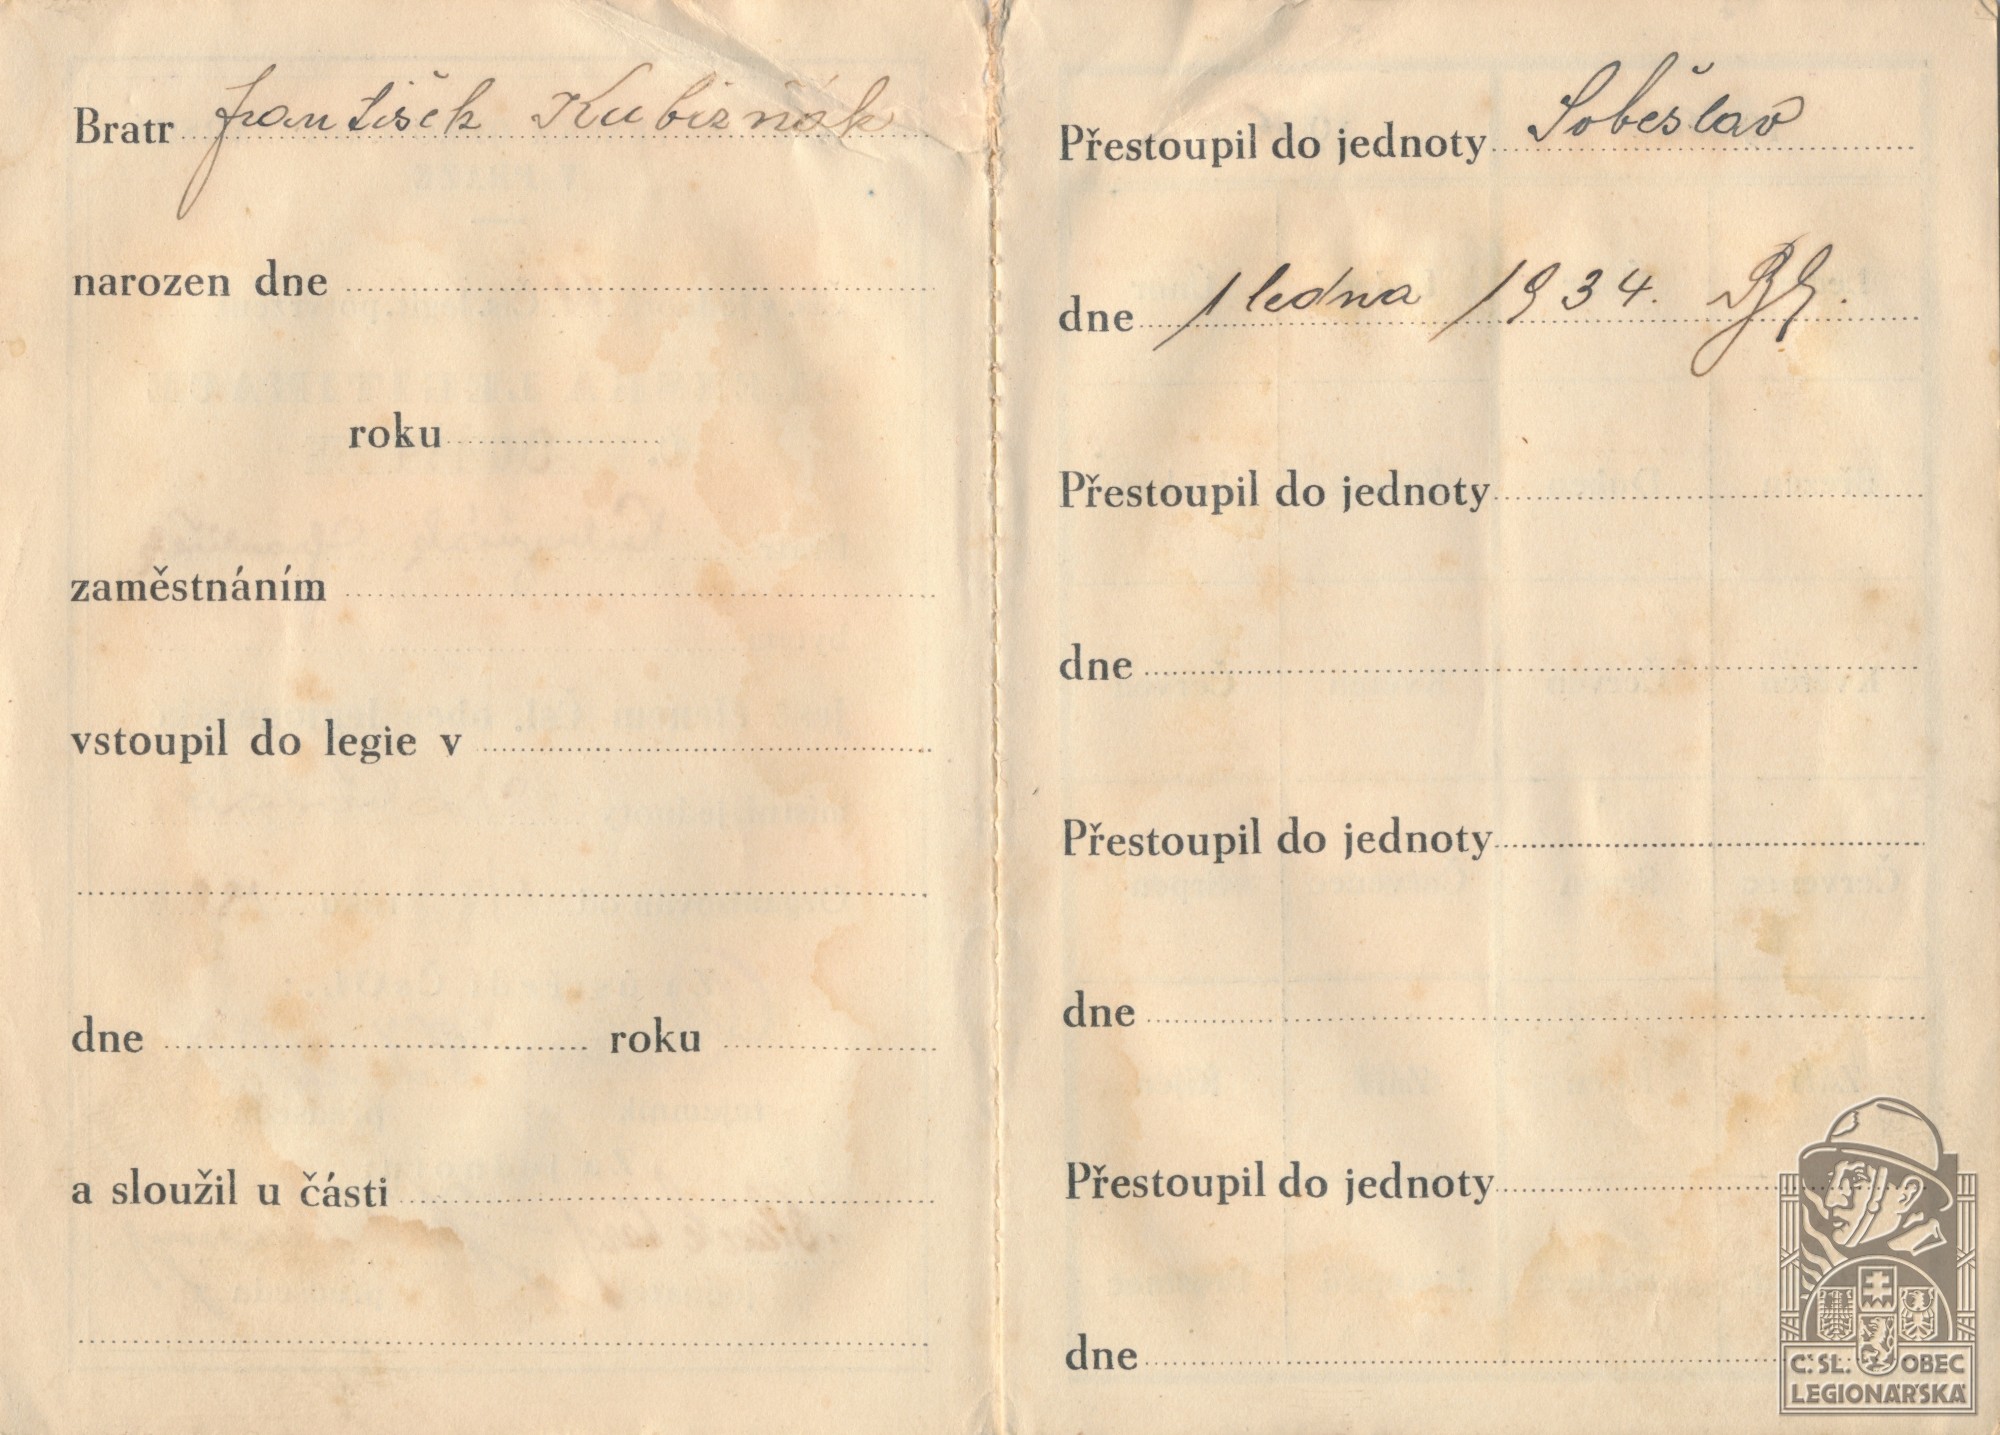 Bratr František Kubizňák
narozen dne
roku
zaměstnáním
vstoupil do legie v
dne roku
a sloužil u části
Přestoupil do jednoty Soběslav
dne 1 ledna 1934.
Přestoupil do jednoty
dne
Přestoupil do jednoty
dne
Přestoupil do jednoty
dne
Č. SL. OBEC
LEGIONÁŘSKÁ